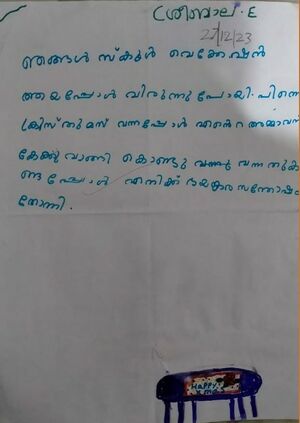 ശ്രീബാല. E
27/12/23
ഞങ്ങൾ സ്കൂൾ വെക്കേഷൻ
ആയപ്പോൾ വിരുന്നു പോയി. പിന്നെ
ക്രിസ്തുമസ് വന്നപ്പോൾ എന്റെ അമ്മാവൻ
കേക്കു വാങ്ങി കൊണ്ടു വന്നു വന്നതുക
ണ്ടപ്പോൾ എനിക്ക് ഭയങ്കര സന്തോഷം
തോന്നി.
HAPPY